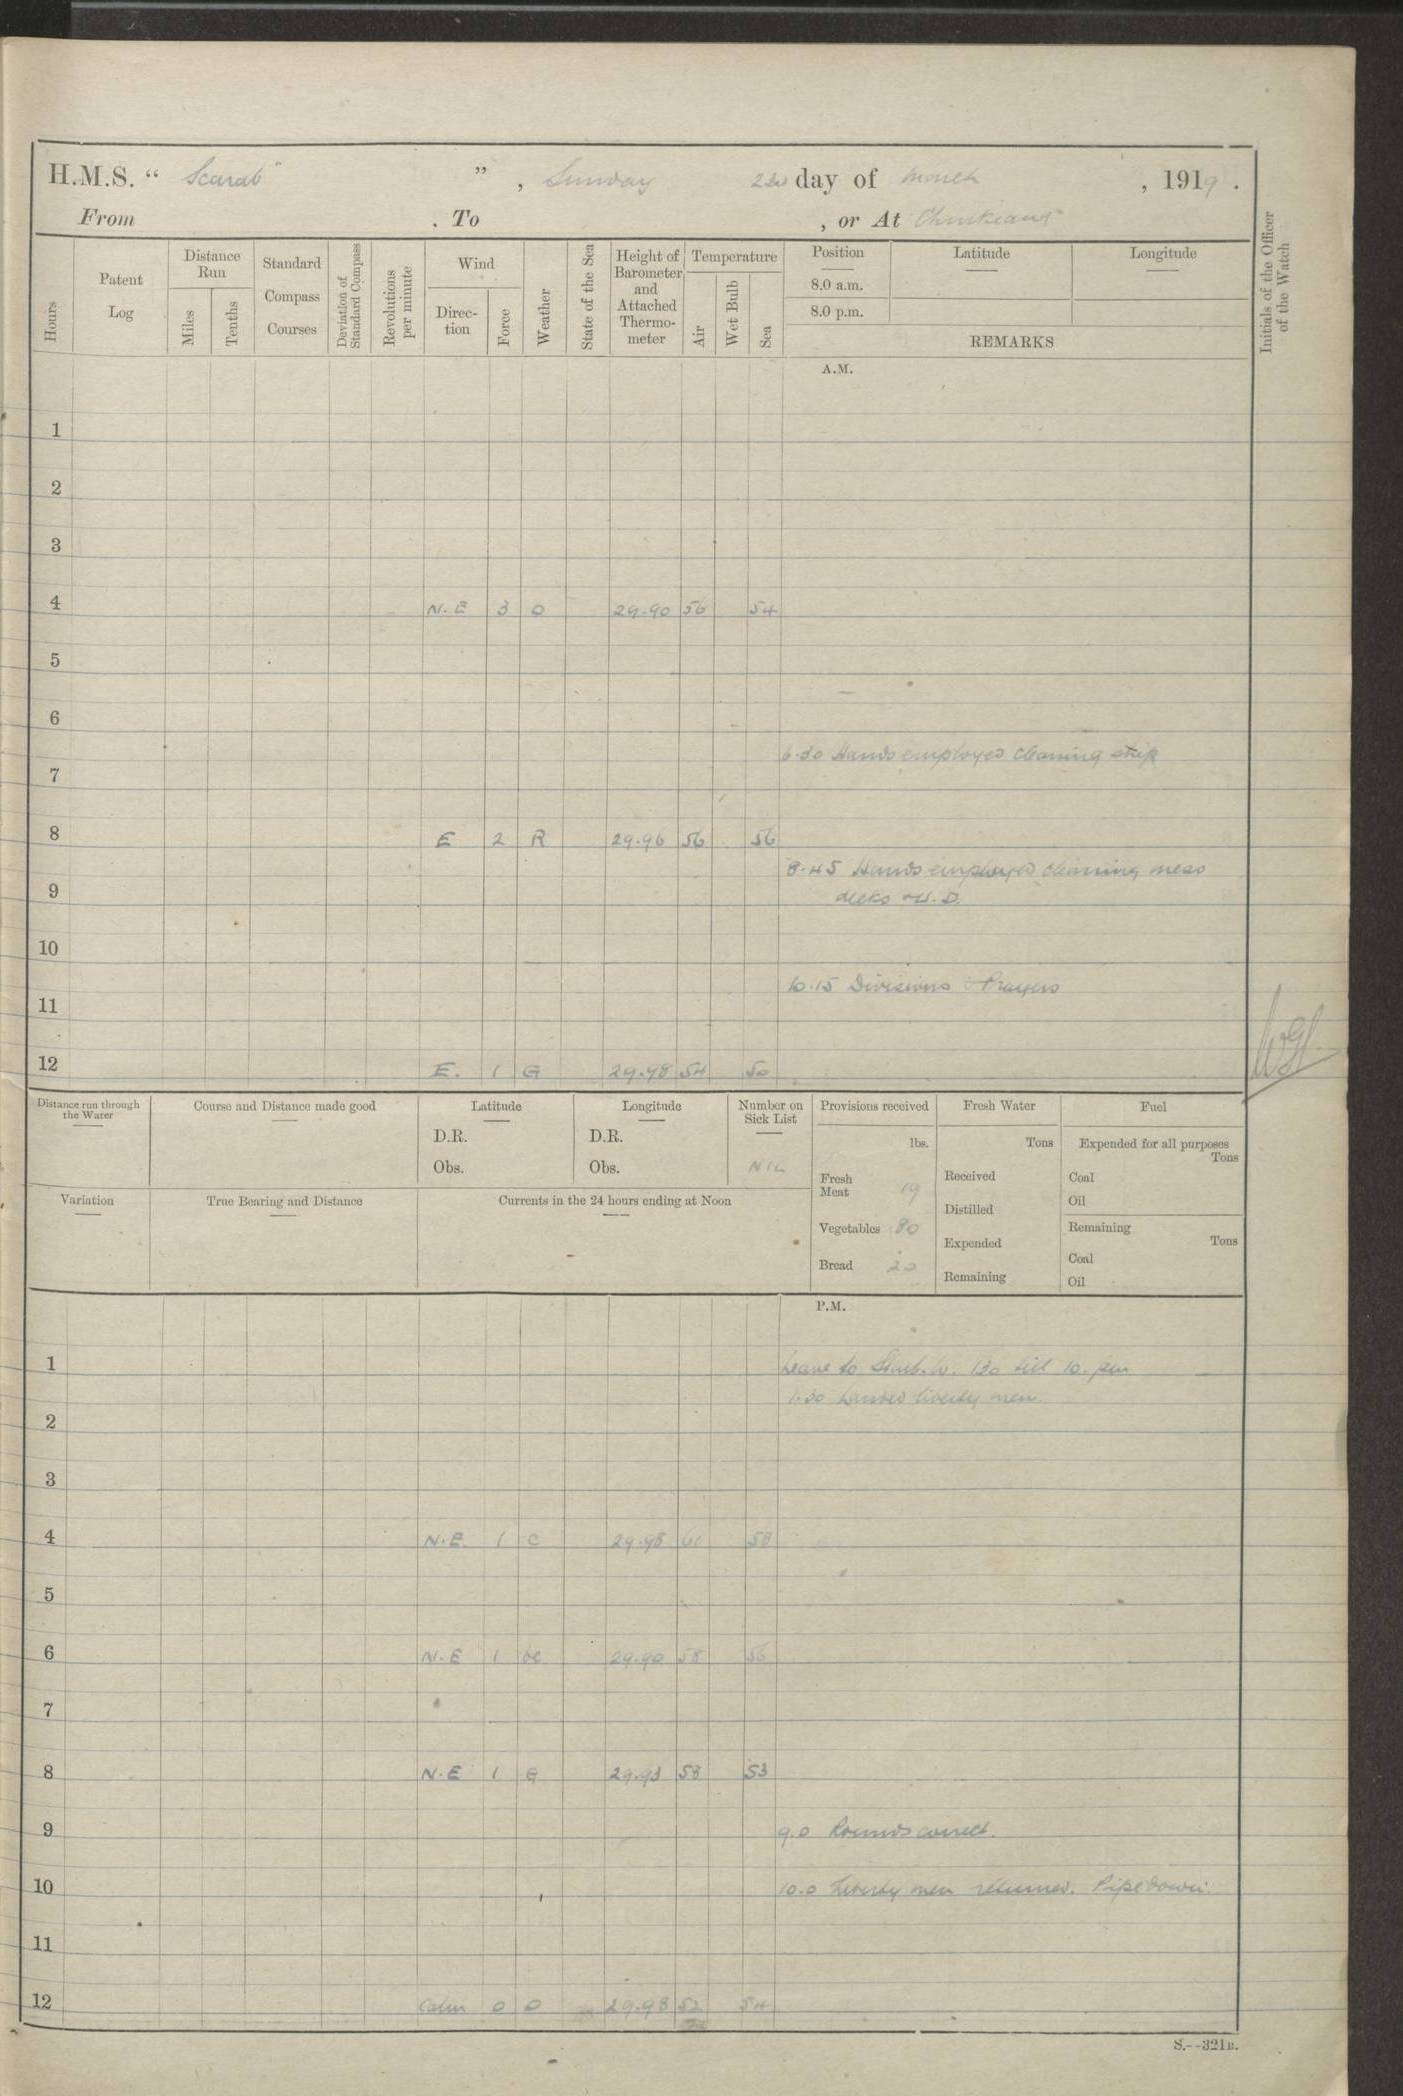 H.M.S. " Scarab " , Sunday 2nd day of March , 1919 .
From . To , or At Chinkiang
Hours
Patent Log
Distance Run
Miles
Tenths
Standard Compass Courses
Deviation of Standard Compass
Revolutions per minute
Wind
Direc-tion
Force
Weather
State of the Sea
Height of Barometer and Attached Thermo-meter
Temperature
Air
Wet Bulb
Sea
Position
8.0 a.m.
8.0 p.m.
Latitude
Longitude
REMARKS
Initials of the Officer of the Watch
A.M.
1
2
3
4 N.E 3 O 29.90 56 54
5
6
6.30 Hands employed cleaning ship
7
8 E 2 R 29.96 56 56
8.45 Hands employed cleaning mess
9 decks & U.D.
10
10.15 Divisions & Prayers
11
12 E. 1 G 29.98 54 50
Distance run through the Water
Course and Distance made good
Latitude
D.R.
Obs.
Longitude
D.R.
Obs.
Number on Sick List
NIL
Variation
True Bearing and Distance
Currents in the 24 hours ending at Noon
Provisions received
lbs.
Fresh Meat 19
Vegetables 80
Bread 20
Fresh Water
Tons
Received
Distilled
Expended
Remaining
Fuel
Expended for all purposes
Tons
Coal
Oil
Remaining
Tons
Coal
Oil
P.M.
1 Leave to Starb. W. 130 till 10. pm
1.30 Landed liberty men.
2
3
4 N.E. 1 C 29.98 61 58
5
6 N.E 1 bc 29.90 58 56
7
8 N.E 1 G 29.93 58 53
9 9.0 Rounds correct.
10 10.0 Liberty men returned. Pipe down.
11
12 Calm 0 O 29.98 52 54
S.--321B.